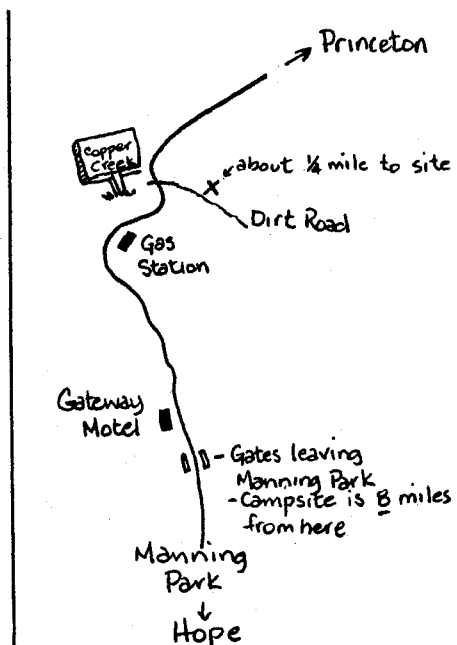 → Princeton
Copper
Creek
about ¼ mile to site
Dirt Road
Gas
Station
Gateway
Motel
- Gates leaving
Manning Park
- Campsite is 8 miles
from here
Manning
Park
↓
Hope